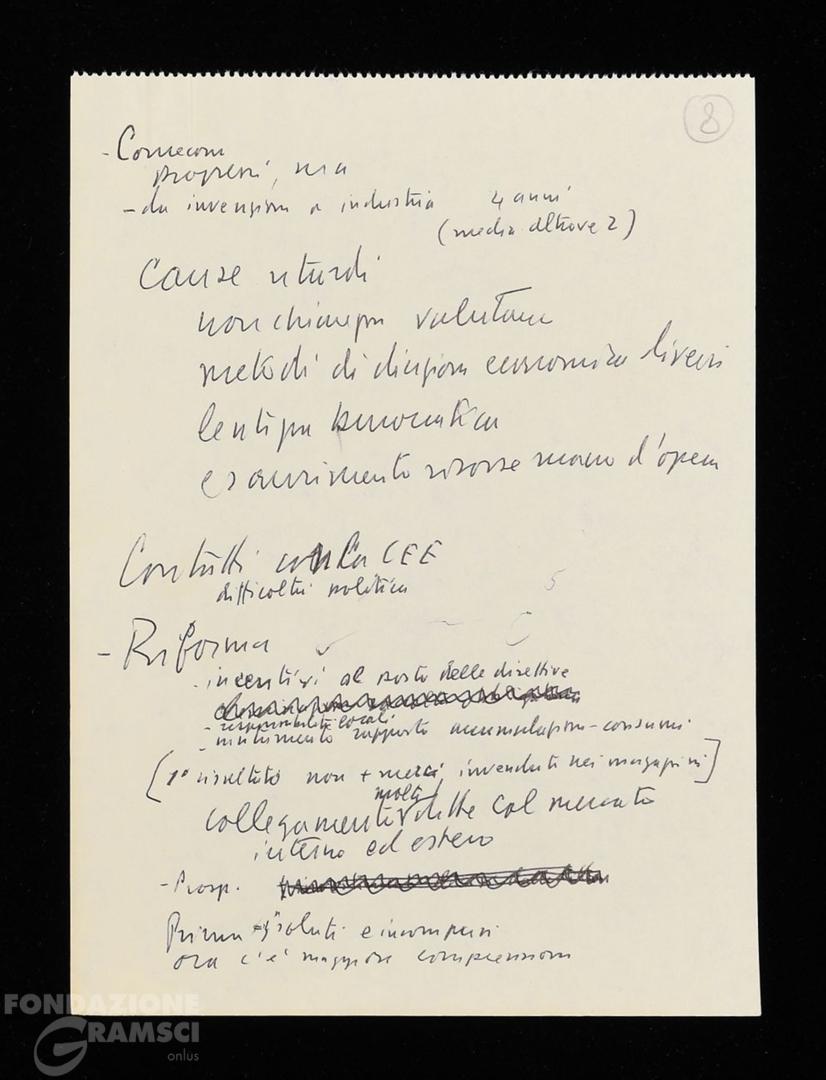 8
- Comecon
progressi, ma
- da invenzione a industria 4 anni
(media altrove 2)
Cause ritardi
non chiarezza valutaria
metodi di direzione economica diversi
lentezza burocratica
esaurimento risorse mano d'opera
Contatti con la CEE
difficoltà politica
- Riforma
- incentivi al posto delle direttive
- responsabilità locali
- mutamento rapporto accumulazione-consumi
[1° risultato non + merci invendute nei magazzini]
molte
collegamenti ditte col mercato
interno ed estero
- Prosp.
Prima isolati e incompresi
ora c'è maggiore comprensione
FONDAZIONE
GRAMSCI
onlus